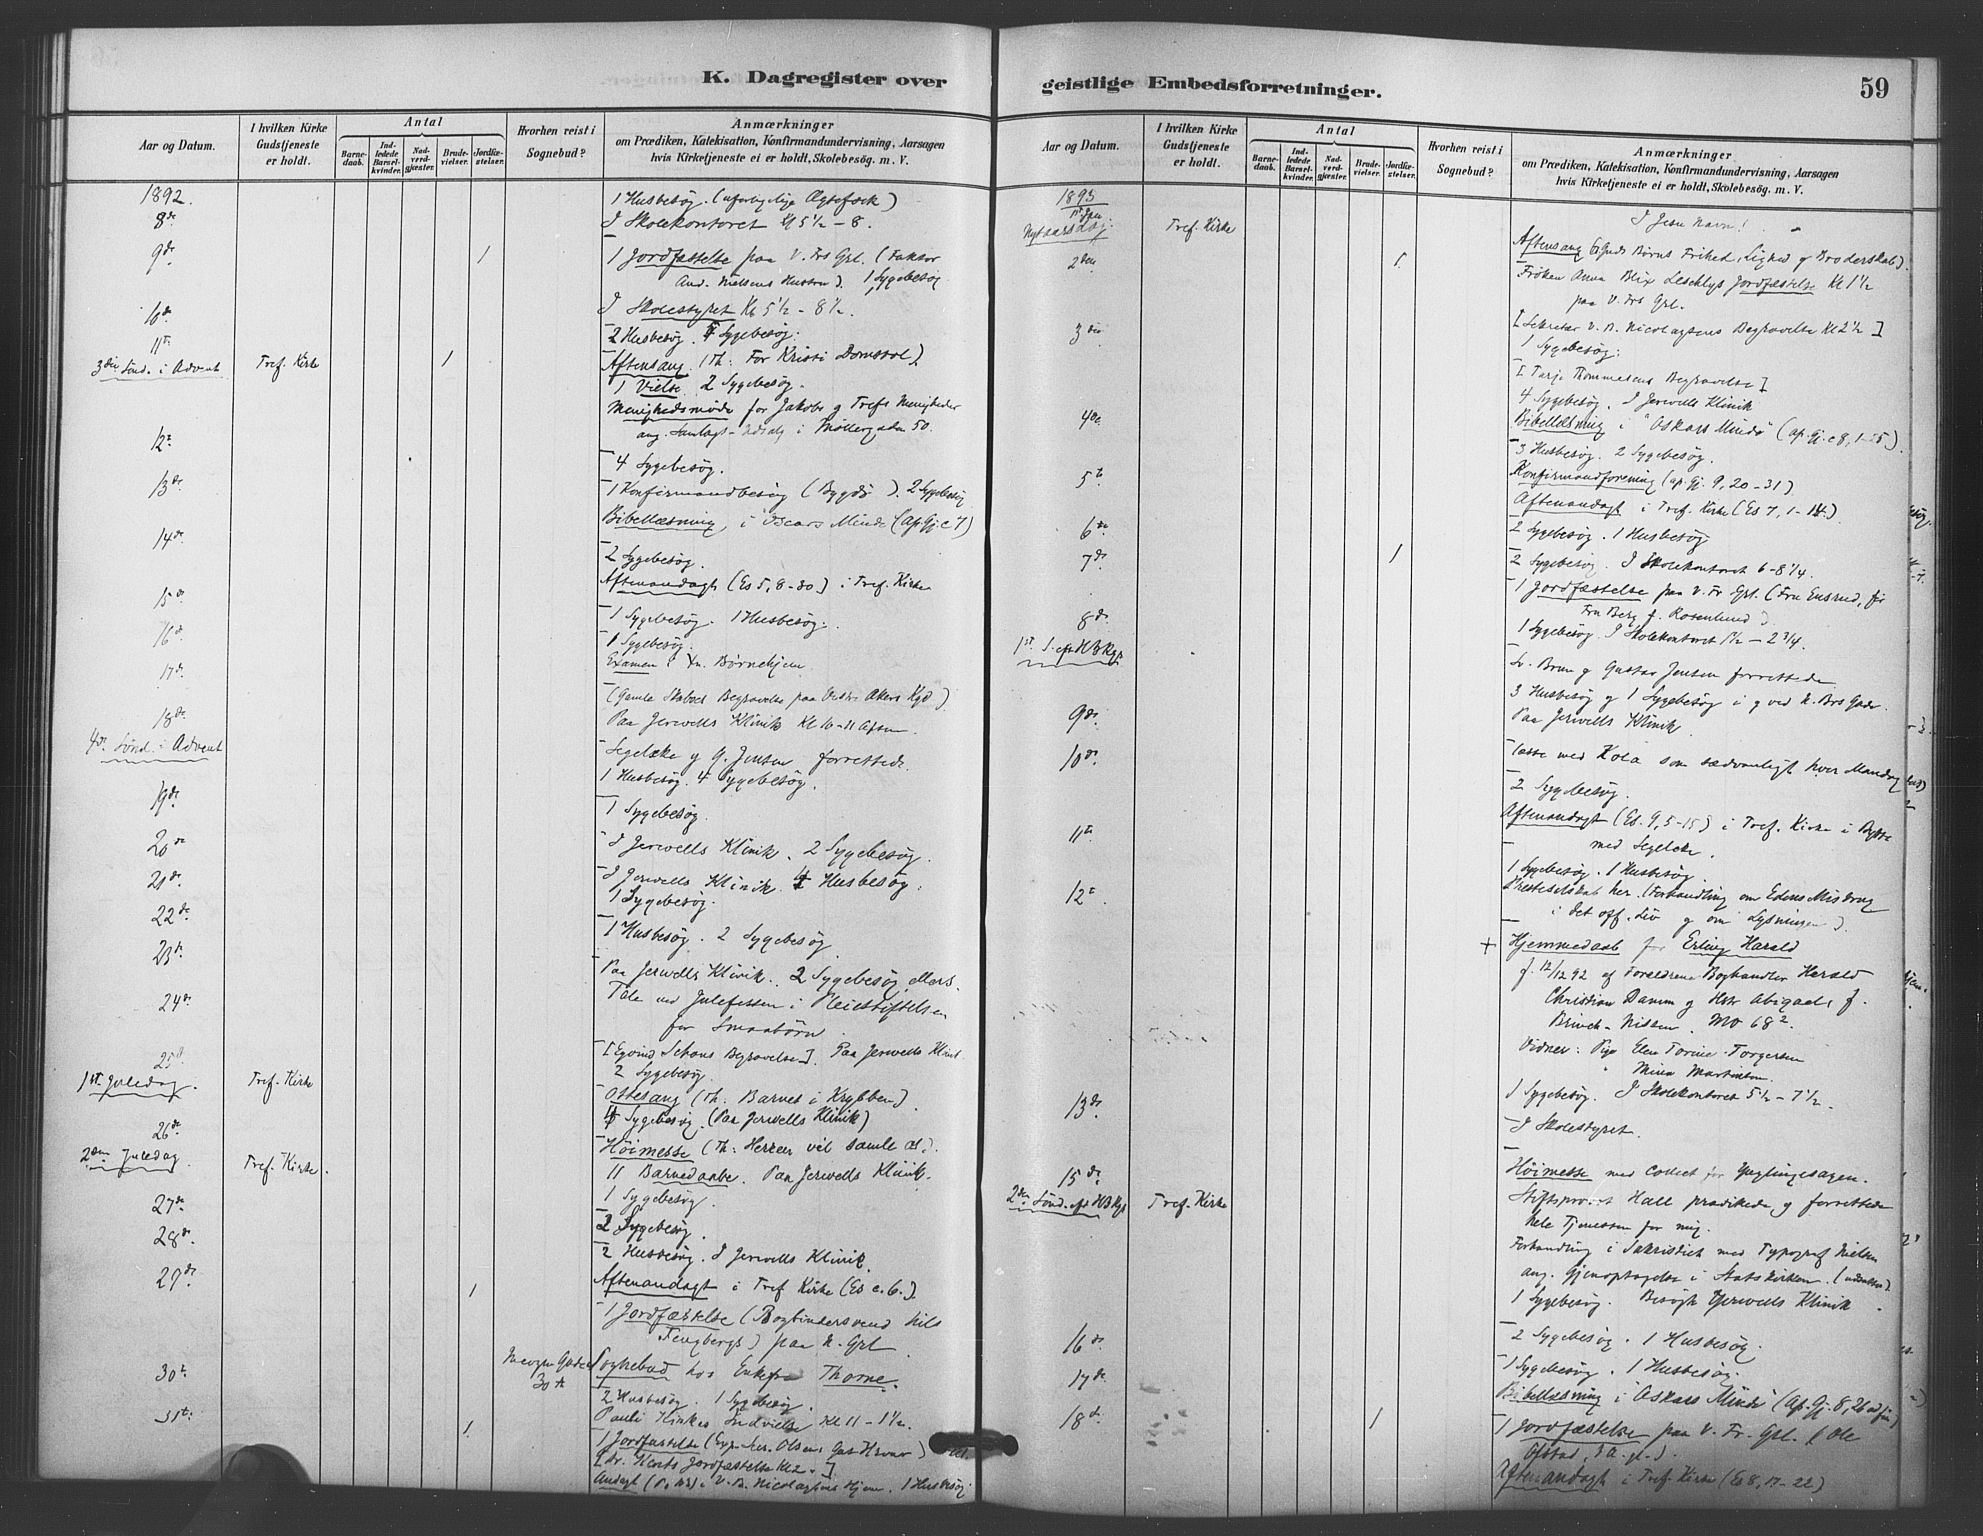 K. Dagregister over
Aar og Datum.
I hvilken Kirke Gudstjeneste er holdt.
Antal
Barnedaab.
Indledede Barselkvinder.
Nadverdgjæster.
Brudevielser.
Jordfæstelser.
Hvorhen reist i Sognebud?
Anmærkninger
om Prædiken, Katekisation, Konfirmandundervisning, Aarsagen
hvis Kirketjeneste ei er holdt, Skolebesøg. m. V.
1892.
1 Husbesøg.
8de
I Skolekontoret Kl 5½ – 8.
9de 1
1 Jordfæstelse paa V. Frs Grl. (Faktor
And. Nielsens Hustru). 1 Sygebesøg
10de
I Skolestyret Kl 5½ – 8½.
11te
2 Husbesøg. Sygebesøg.
3die Sønd. i Advent Tref. Kirke 1
Aftensang. (Th: For Kristi Domstol).
1 Vielse. 2 Sygebesøg.
Menighedsmøde for Jakobs og Trefs Menigheder
ang. Samlags-Udsalg i Møllergaden 50.
12te
4 Sygebesøg.
13de
1 Konfirmandbesøg (Bygdø). 2 Sygebesøg
Bibellæsning, i Oscars Minde (Ap Gj. c 7)
14de
2 Sygebesøg.
Aftenandagt (Es 5, 8–30) i Tref. Kirke
15de
1 Sygebesøg. 1 Husbesøg.
16de
1 Sygebesøg.
Examen i Børnehjem
17de
(Gamle Begravelse paa Vestre Akers Kgd).
18de
Paa Jerwells Klinik Kl 10–11 Aften.
4de Sønd. i Advent
Segelcke og G. Jensen forrettede.
1 Husbesøg. 4 Sygebesøg.
19de
1 Sygebesøg.
20de
I Jerwells Klinik. 2 Sygebesøg.
21de
I Jerwells Klinik. Husbesøg.
1 Sygebesøg.
22de
1 Husbesøg. 2 Sygebesøg
23de
Paa Jerwells Klinik. 2 Sygebesøg ellers.
24de
Tale ved Julefesten i Pleiestiftelsen
for Smaabørn.
[Eyvind Begravelse]. Paa Jerwells Klinik.
25de
2 Sygebesøg.
1ste Juledag. Tref. Kirke
Ottesang (Th: Barnet i Krybben).
Sygebesøg. (Paa Jerwells Klinik)
26de
2den Juledag. Tref. Kirke.
Høimesse (Th: Herren vil samle os).
11 Barnedaabe. Paa Jerwells Klinik.
27de
1 Sygebesøg.
28de
2 Sygebesøg.
2 Husbesøg. I Jerwells Klinik.
29de 1
Aftenandagt i Tref Kirke (Es c. 6.).
1 Jordfæstelse (Bogbindersvend Nils
Tengbergs) paa N. Grl.
30te 30 A
Sognebud hos Enkefru Thorne.
2 Husbesøg. 1 Sygebesøg.
31te 1
Kl 11 – 1½.
1 Jordfæstelse (Exp. Olsens)
Jordfæstelse Kl 2.
Andagt i V. B. Nicolaysens Hjem. 1 Husbesøg
geistlige Embedsforretninger.
59
Aar og Datum.
I hvilken Kirke Gudstjeneste er holdt.
Antal
Barnedaab.
Indledede Barselkvinder.
Nadverdgjæster.
Brudevielser.
Jordfæstelser.
Hvorhen reist i Sognebud?
Anmærkninger
om Prædiken, Katekisation, Konfirmandundervisning, Aarsagen
hvis Kirketjeneste ei er holdt, Skolebesøg. m. V.
1893
1ste Jan.
I Jesu Navn!
Nytaarsdag. Tref. Kirke
Aftensang (Guds Børns Frihed, Lighed og Broderskab).
2den 1
Frøken Anna Blix Jordfæstelse Kl 1½
paa V. Frs Grl.
[Sekretær V. B. Nicolaysens Begravelse Kl 2½]
3die
1 Sygebesøg.
[Tarje Thommesens Begravelse]
4 Sygebesøg. I Jerwells Klinik
4de
Bibellæsning i "Oskars Minde" (Ap. Gj. c 8, 1–25).
3 Husbesøg. 2 Sygebesøg.
5te
Konfirmandforening (Ap. Gj. 9, 20–31)
Aftenandagt i Tref. Kirke (Es 7, 1–14).
6te
2 Sygebesøg. 1 Husbesøg
7de 1
2 Sygebesøg. I Skolekontoret 6–8¼.
1 Jordfæstelse paa V. Fr Grl. (Fru Ensrud,
Fru Berg f. Rosenlund)
8de
1 Sygebesøg. I Skolekontoret 1½ – 2¾.
1ste S. eft H3Kgr
Brun og Gustav Jensen forrettede
3 Husbesøg og 1 Sygebesøg i og ved N. Brs Gade.
9de
Paa Jerwells Klinik.
10de
Læste med Kola som sædvanligt hver Mandag
2 Sygebesøg.
Aftenandagt (Es. 9, 5–15) i Tref. Kirke i Bytte
11te
med Segelcke.
1 Sygebesøg. 1 Husbesøg.
12te
her. (Forhandling om Edens Misbrug
i det off. Liv og om Lysningen).
+ Hjemmedaab for Erling Harald
f. 12/12 92 af Forældrene Boghandler Herald
Christian Damm og Hstr Abigael f.
Brinch-Nissen. MG 68².
Vidner: Pige Elen Torine Torgersen
" Mina Martinsen.
13de
1 Sygebesøg. I Skolekontoret 5½ – 7½.
I Skolestyret.
15de
Høimesse med Collect for Ynglingesagen.
2den Sønd. eft H3Kgr Tref. Kirke
Stiftsprovst Hall prædikede og forrettede
hele Tjenesten for mig.
Forhandling i Sakristiet med Typograf Nielsen
ang. Gjenoptagelse i Statskirken.
1 Sygebesøg. Besøgte Jerwells Klinik.
16de
2 Sygebesøg. 1 Husbesøg.
17de
1 Sygebesøg. 1 Husbesøg.
Bibellæsning i "Oskars Minde" (Ap. Gj. 8, 26 ad fin)
18de 1
1 Jordfæstelse paa V. Fr. Grl. (Ole
Ofstad, 3 A. gl.).
Aftenandagt i Tref. Kirke (Es 8, 17–22)